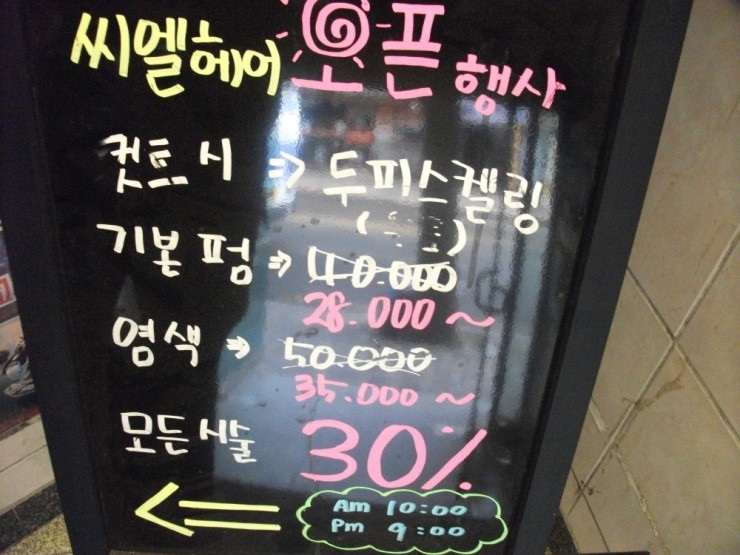 씨엘헤어 오픈 행사
컷트 시 ⇒ 두피스켈링
기본 펌 ⇒ 40.000
28.000 ~
염색 ⇒ 50.000
35.000 ~
모든 시술 30%
Am 10:00
Pm 9:00